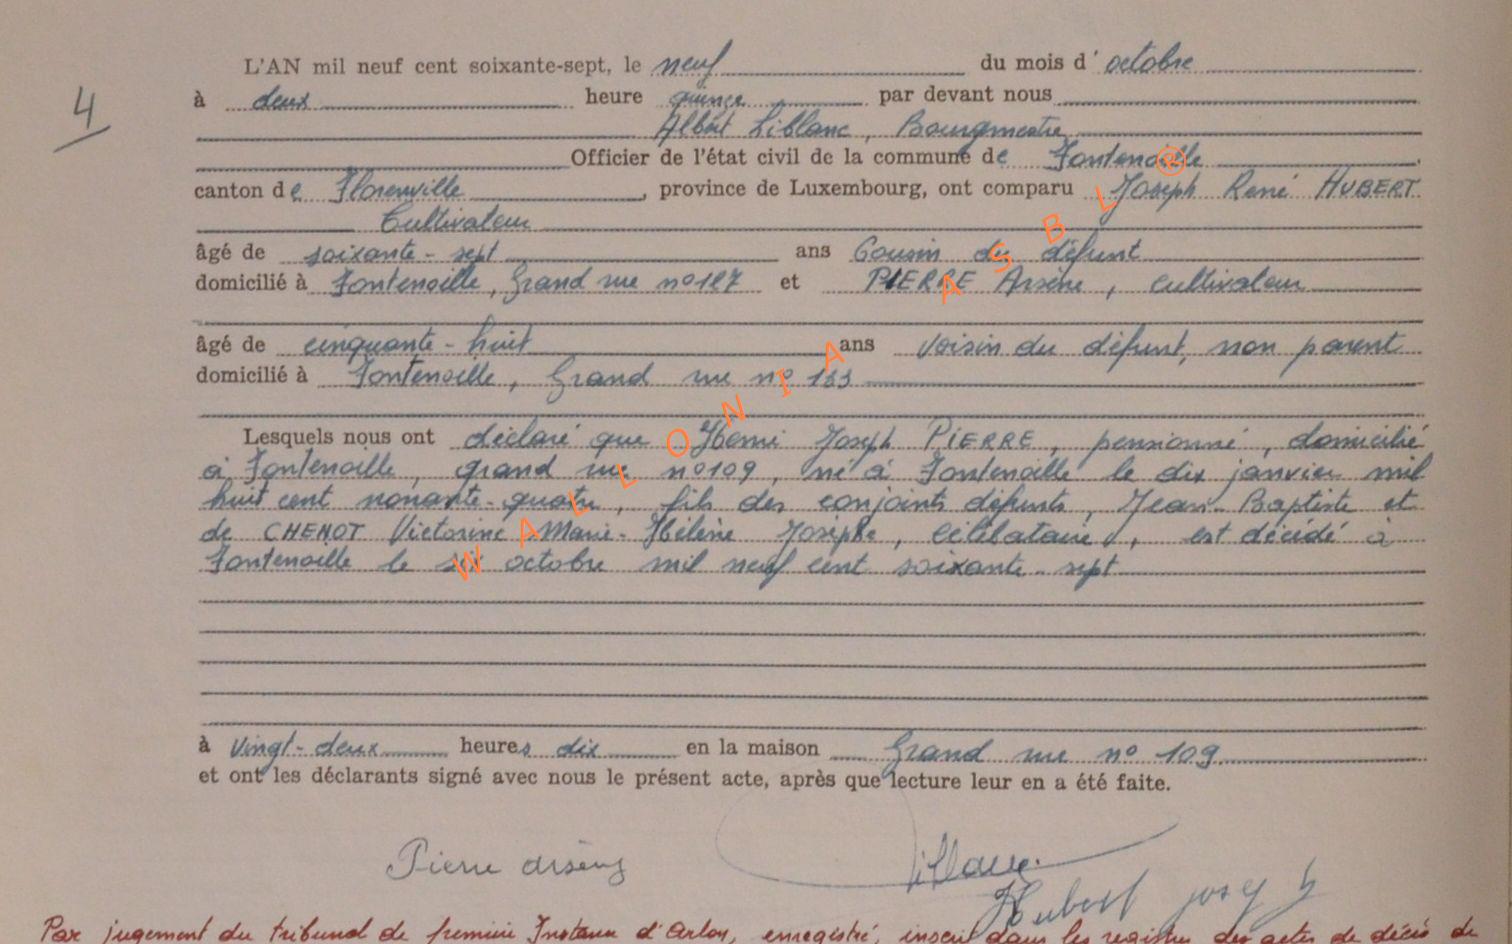 L'AN mil neuf cent soixante-sept, le neuf du mois d' octobre
4
à deux heure quinze par devant nous
Albert Liblanc, Bourgmestre
Officier de l'état civil de la commune de Fontenoille
canton de Florenville, province de Luxembourg, ont comparu Joseph René HUBERT
Cultivateur
âgé de soixante-sept ans Cousin du défunt
domicilié à Fontenoille, Grand rue n° 127 et PIERRE Arsène, cultivateur
âgé de cinquante-huit ans Voisin du défunt, non parent
domicilié à Fontenoille, Grand rue n° 133
Lesquels nous ont déclaré que Henri Joseph PIERRE, pensionné, domicilié
à Fontenoille, grand rue n° 109, né à Fontenoille le dix janvier mil
huit cent nonante-quatre, fils des conjoints défunts, Jean-Baptiste et
de CHENOT Victorine Marie-Hélène Josèphe, célibataire, est décédé à
Fontenoille le six octobre mil neuf cent soixante-sept
à Vingt-deux heures dix en la maison Grand rue n° 109
et ont les déclarants signé avec nous le présent acte, après que lecture leur en a été faite.
Pierre Arsène Liblanc
Hubert Joseph
Par jugement du tribunal de première Instance d'Arlon, enregistré, inscrit dans les registres des actes de décès de
WALLONIA ASBL ®